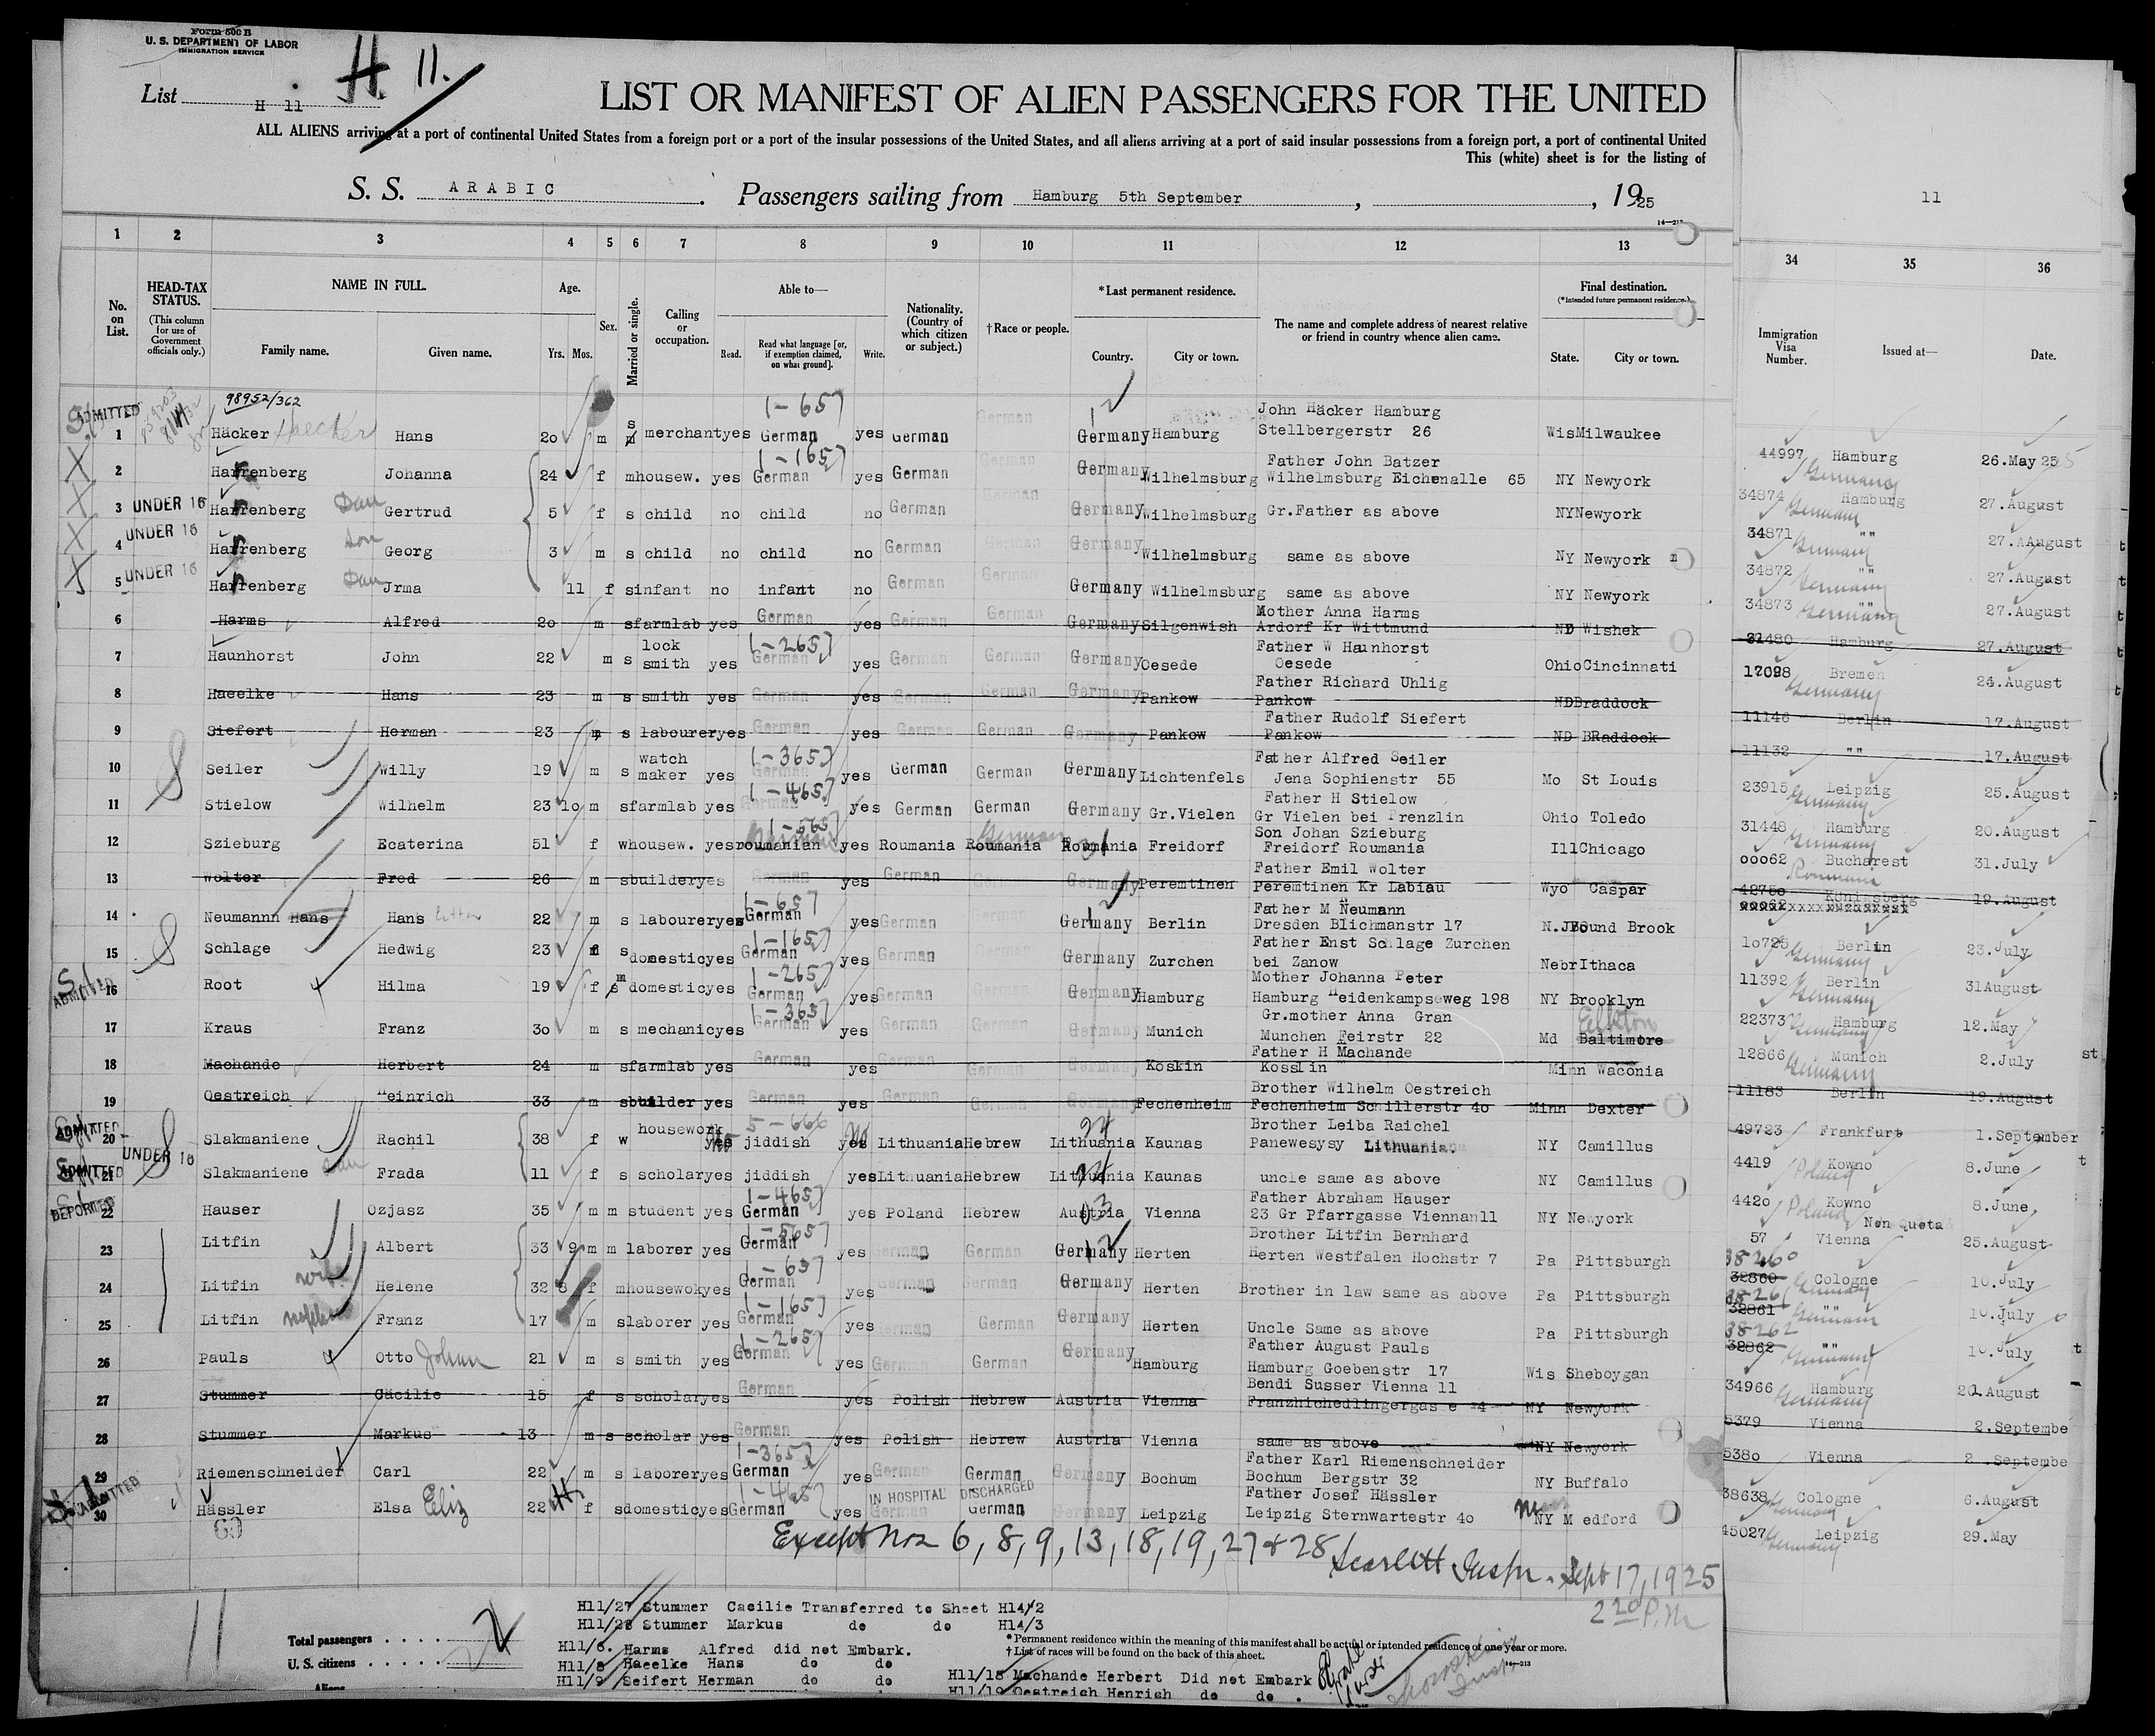 Form 500 B
U. S. DEPARTMENT OF LABOR
IMMIGRATION SERVICE
H. 11.
List H 11
LIST OR MANIFEST OF ALIEN PASSENGERS FOR THE UNITED
ALL ALIENS arriving at a port of continental United States from a foreign port or a port of the insular possessions of the United States, and all aliens arriving at a port of said insular possessions from a foreign port, a port of continental United
This (white) sheet is for the listing of
S. S. ARABIC. Passengers sailing from Hamburg 5th September, , 1925
11
1 2 3 4 5 6 7 8 9 10 11 12 13 34 35 36
No. on List. HEAD-TAX STATUS. (This column for use of Government officials only.) NAME IN FULL. Family name. Given name. Age. Yrs. Mos. Sex. Married or single. Calling or occupation. Able to— Read. Read what language [or, if exemption claimed, on what ground]. Write. Nationality. (Country of which citizen or subject.) †Race or people. *Last permanent residence. Country. City or town. The name and complete address of nearest relative or friend in country whence alien came. Final destination. (*Intended future permanent residence.) State. City or town. Immigration Visa Number. Issued at— Date.
98952/362
ADMITTED 1 Häcker Haecker Hans 20 m s merchant yes German yes German German Germany Hamburg John Häcker Hamburg Stellbergerstr 26 Wis Milwaukee 44997 Hamburg 26.May 25
2 Harrenberg Johanna 24 f m housew. yes German yes German German Germany Wilhelmsburg Father John Batzer Wilhelmsburg Eichenalle 65 NY Newyork 34874 Hamburg 27.August
3 UNDER 16 Harrenberg Dau Gertrud 5 f s child no child no German German Germany Wilhelmsburg Gr.Father as above NY Newyork 34871 "" 27.August
4 UNDER 16 Harrenberg Son Georg 3 m s child no child no German German Germany Wilhelmsburg same as above NY Newyork 34872 "" 27.August
5 UNDER 16 Harrenberg Dau Jrma 11 f s infant no infant no German German Germany Wilhelmsburg same as above NY Newyork 34873 "" 27.August
6 Harms Alfred 20 m s farmlab yes German yes German German Germany Silgenwish Mother Anna Harms Ardorf Kr Wittmund ND Wishek 31480 Hamburg 27.August
7 Haunhorst John 22 m s lock smith yes German yes German German Germany Oesede Father W Haunhorst Oesede Ohio Cincinnati 17098 Bremen 24.August
8 Haeelke Hans 23 m s smith yes German yes German German Germany Pankow Father Richard Uhlig Pankow ND Braddock 11146 Berlin 17.August
9 Siefert Herman 23 m s labourer yes German yes German German Germany Pankow Father Rudolf Siefert Pankow ND BRaddock 11132 "" 17.August
10 Seiler Willy 19 m s watch maker yes German yes German German Germany Lichtenfels Father Alfred Seiler Jena Sophienstr 55 Mo St Louis 23915 Leipzig 25.August
11 Stielow Wilhelm 23 10 m s farmlab yes German yes German German Germany Gr.Vielen Father H Stielow Gr Vielen bei Prenzlin Ohio Toledo 31448 Hamburg 20.August
12 Szieburg Ecaterina 51 f w housew. yes roumanian yes Roumania Roumania German Roumania Freidorf Son Johan Szieburg Freidorf Roumania Ill Chicago 00062 Bucharest Roumania 31.July
13 Wolter Fred 26 m s builder yes German yes German German Germany Peremtinen Father Emil Wolter Peremtinen Kr Labiau Wyo Caspar 42750 Königsberg 19.August
14 Neumannn Hans Hans 22 m s labourer yes German yes German German Germany Berlin Father M Neumann Dresden Blichmanstr 17 N.J. Bound Brook 10725 Berlin 23.July
15 Schlage Hedwig 23 f s domestic yes German yes German German Germany Zurchen Father Enst Schlage Zurchen bei Zanow Nebr Ithaca 11392 Berlin 31August
ADMITTED 16 Root Hilma 19 f m domestic yes German yes German German Germany Hamburg Mother Johanna Peter Hamburg Heidenkampseweg 198 NY Brooklyn 22373 Hamburg 12.May
17 Kraus Franz 30 m s mechanic yes German yes German German Germany Munich Gr.mother Anna Gran Munchen Feirstr 22 Md Baltimore Elkton 12866 Munich 2.July
18 Machande Herbert 24 m s farmlab yes German yes German German Germany Koskin Father H Machande Kosslin Minn Waconia 11183 Berlin 19.August
19 Oestreich Heinrich 33 m s builder yes German yes German German Germany Fechenheim Brother Wilhelm Oestreich Fechenheim Schillerstr 40 Minn Dexter 49723 Frankfurt 1.September
ADMITTED 20 Slakmaniene Rachil 38 f w housework yes No jiddish yes No Lithuania Hebrew Lithuania Kaunas Brother Leiba Raichel Panewesysy Lithuania. NY Camillus 4419 Kowno Poland 8.June
ADMITTED 21 UNDER 16 Slakmaniene Dau Frada 11 f s scholar yes jiddish yes Lithuania Hebrew Lithuania Kaunas uncle same as above NY Camillus 4420 Kowno Poland 8.June
DEPORTED 22 Hauser Ozjasz 35 m m student yes German yes Poland Hebrew Austria Vienna Father Abraham Hauser 23 Gr Pfarrgasse Viennan11 NY Newyork Non quota 57 Vienna 25.August
23 Litfin Albert 33 9 m m laborer yes German yes German German Germany Herten Brother Litfin Bernhard Herten Westfalen Hochstr 7 Pa Pittsburgh 38260 32860 Cologne 10.July
24 Litfin wife Helene 32 8 f m housewok yes German yes German German Germany Herten Brother in law same as above Pa Pittsburgh 38261 32861 "" 10.July
25 Litfin nephew Franz 17 m s laborer yes German yes German German Germany Herten Uncle Same as above Pa Pittsburgh 38262 32862 "" 10.July
26 Pauls Otto Johan 21 m s smith yes German yes German German Germany Hamburg Father August Pauls Hamburg Goebenstr 17 Wis Sheboygan 34966 Hamburg August
27 Stummer Cäcilie 15 f s scholar yes German yes Polish Hebrew Austria Vienna Bendi Susser Vienna 11 Franzhichedlingergasse 4 NY Newyork 5379 Vienna 2.Septembe
28 Stummer Markus 13 m s scholar yes German yes Polish Hebrew Austria Vienna same as above NY Newyork 5380 Vienna 2.Septembe
29 Riemenschneider Carl 22 m s laborer yes German yes German German Germany Bochum Father Karl Riemenschneider Bochum Bergstr 32 NY Buffalo 38638 Cologne 6.August
ADMITTED 30 Hässler Elsa Eliz 22 f s domestic yes German yes IN HOSPITAL DISCHARGED German German Germany Leipzig Father Josef Hässler Leipzig Sternwartestr 40 NY Medford 45027 Leipzig 29.May
60
Except Nos 6, 8, 9, 13, 18, 19, 27 & 28
Scarlett Inspr. Sept 17, 1925
2 20 P.M
H11/27 Stummer Caecilie Transferred to Sheet H14/2
H11/28 Stummer Markus do do H14/3
H11/6. Harms Alfred did not Embark.
H11/8 Haeelke Hans do do
H11/9 Seifert Herman do do
H11/18 Machande Herbert Did net Embark
H11/19 Oestreich Henrich do do .
Total passengers
U. S. citizens
Aliens
* Permanent residence within the meaning of this manifest shall be actual or intended residence of one year or more.
† List of races will be found on the back of this sheet.
14—213